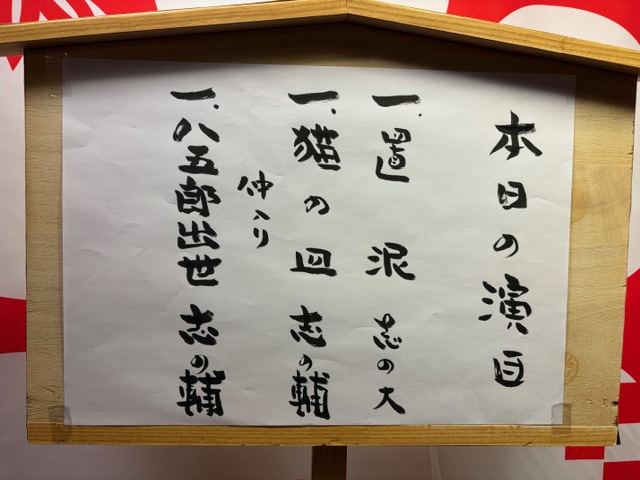 本日の演目
一、置泥 志の大
一、猫の皿 志の輔
仲入り
一、八五郎出世 志の輔